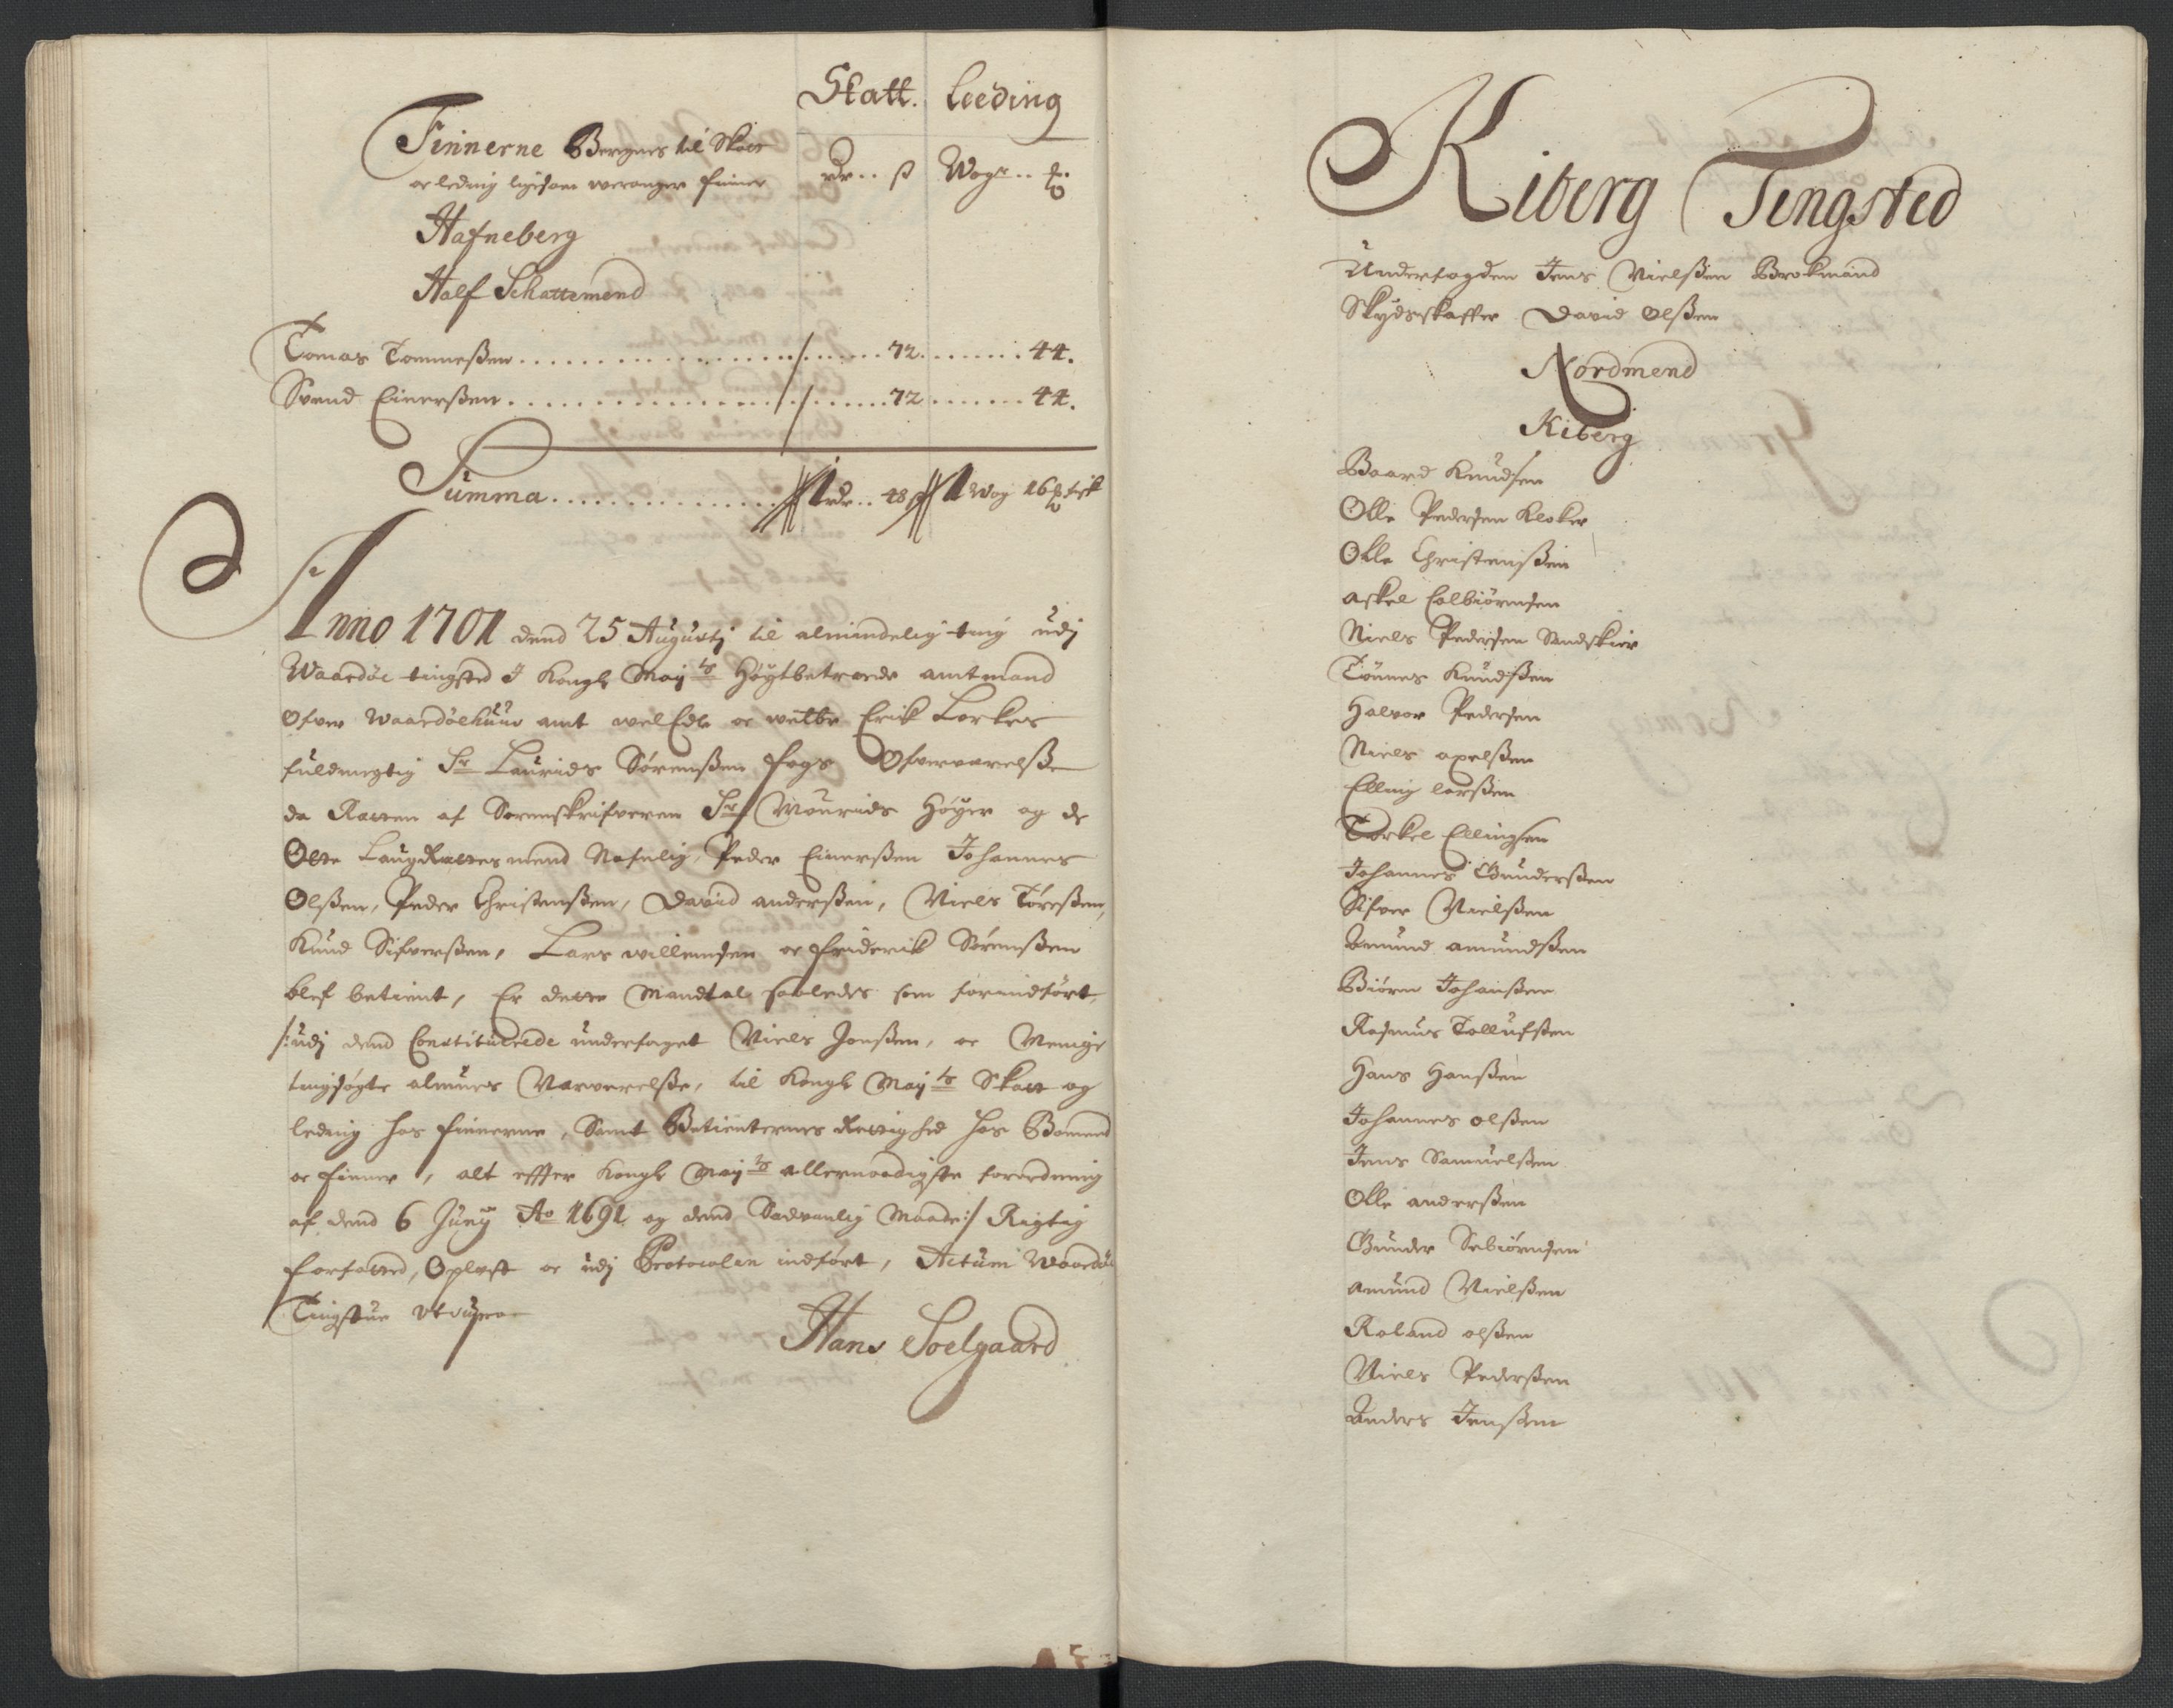 Skatt. Leeding
Finnerne Beregnes til Skatt
oc leding ligesom weranger finner
rdr .. ß Wogr .. ℔
Hafneberg
Half Schattemend
Tomas Tommeßen ........ / ...... 72 ....... 44.
Svend Einerßen ........ / ...... 72 ....... 44.
Summa ........ 1 rdr .. 48 ß 1 Wog 16 ℔ fisk
Anno 1701 dend 25 Augustj til almindelig ting udj
Waardøe tingsted I Kongl May ts Høytbetroede amtmand
Ofver Waardøehuus amt wel Edle oc welbr Erik Lorkes
fuldmegtig Sr Laurids Sørenßen fogs Ofververelße
da Retten af Sorenskrifveren Sr Mourids Høyer og de
Otte LaugRettes mend Nafnlig, Peder Einerßen Johannes
Olßen, Peder Christenßen, David anderßen, Niels Toreßen,
Knud Sifverßen, Lars willemsen oc friderik Sørenßen
blef betient, Er dette Mandtal saaledes som forindført,
/: udj dend Constituerede underfoget Niels Jonßen, oc Menige
tingsøgte almues Nerverelße, til Kongl May ts Skatt og
leding hos finnerne, Samt Betienternes Rettighed hos Bomend
oc finner, alt effter Kongl May ts allernaadigste forordning
af dend 6 Juny Ao 1691 og dend Sedvanlig Maade :/ Rigtig
forfatted, Oplæst oc udj Protocolen indført, Actum Waardøe
Tingstue ut supra
Hans Soelgaard
Kiberg Tingsted
Underfogden Jens Nielßen Brokmand
Skydsskaffer David Olßen
Nordmend
Kiberg
Baard Knudsen
Olle Pedersen Kloker
Olle Christenßen
Askel Colbiørnsen
Niels Pedersen Sandskier
Tønnes Knudßen
Halvor Pedersen
Niels axelßen
Elling larßen
Torkel Ellingsen
Johannes Gunderßen
Sifver Nielßen
Amund amundßen
Biørn Johanßen
Rasmus Tollufßen
Hans Hanßen
Johannes olßen
Jens Samuelßen
Olle anderßen
Gunder Sebiørnsen
Amund Nielßen
Roland olßen
Niels Pederßen
Anders Jenßen